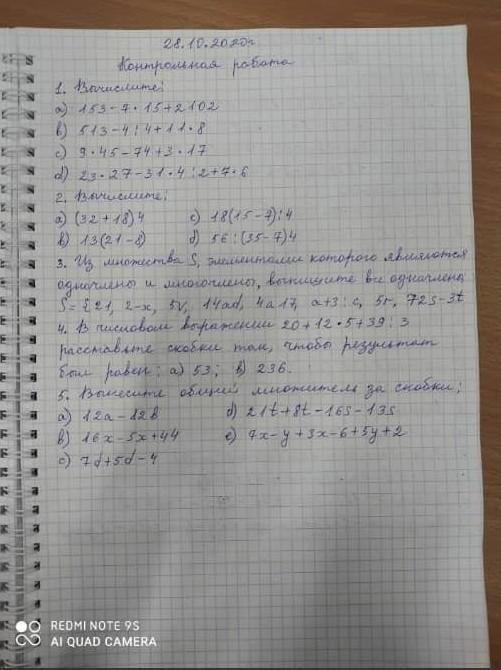 28.10.2020г
Контрольная работа
1. Вычислите:
a) 153-7·15+2102
b) 513-4:4+11·8
c) 9·45-74+3·17
d) 23·27-31·4:2+7·6
2. Вычислите:
a) (32+18)4 c) 18(15-7):4
b) 13(21-8) d) 56:(35-7)4
3. Из множества S, элементами которого являются
одночлены и многочлены, выпишите все одночлены
S={21, 2-x, 5v, 14ad, 4a17, a+3:c, 5r, 72S-3t
4. В числовом выражении 20+12·5+39:3
расставьте скобки так, чтобы результат
был равен: a) 53; b) 236.
5. Вынесите общий множитель за скобки;
a) 12a-12b d) 21t+8t-16s-13s
b) 16x-5x+44 e) 7x-y+3x-6+5y+2
c) 7d+5d-4
REDMI NOTE 9S
AI QUAD CAMERA